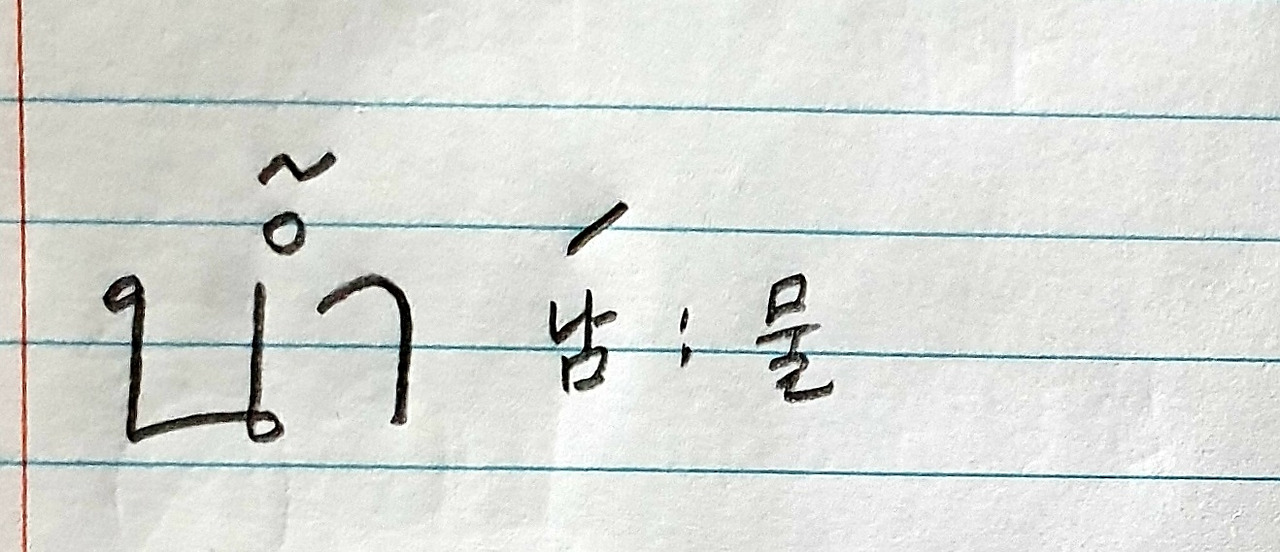 น้ำ 남́ : 물